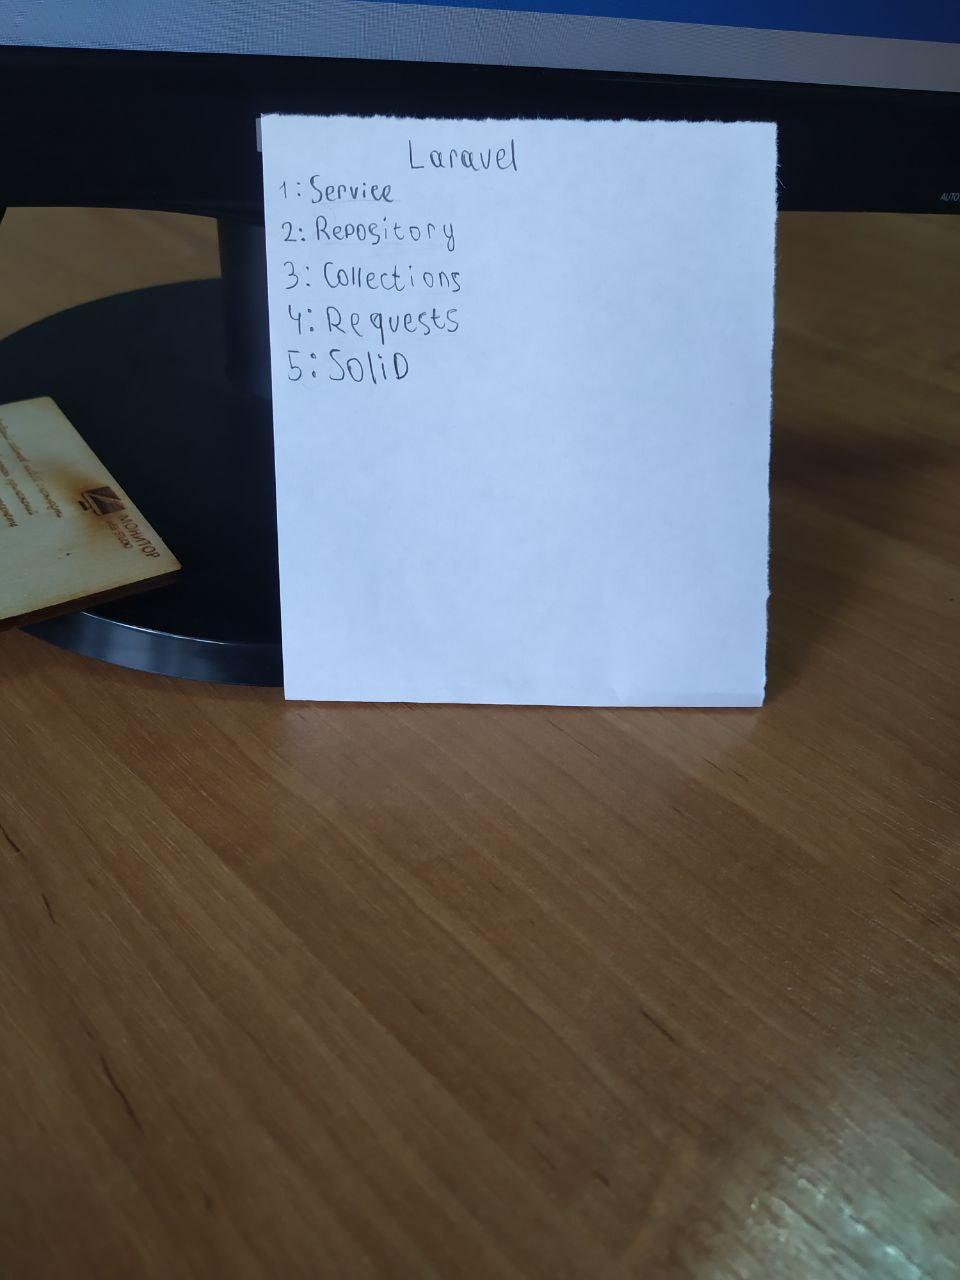 Laravel
1: Service
2: Repository
3: Collections
4: Requests
5: SoliD
AUTO
МОНИТОР